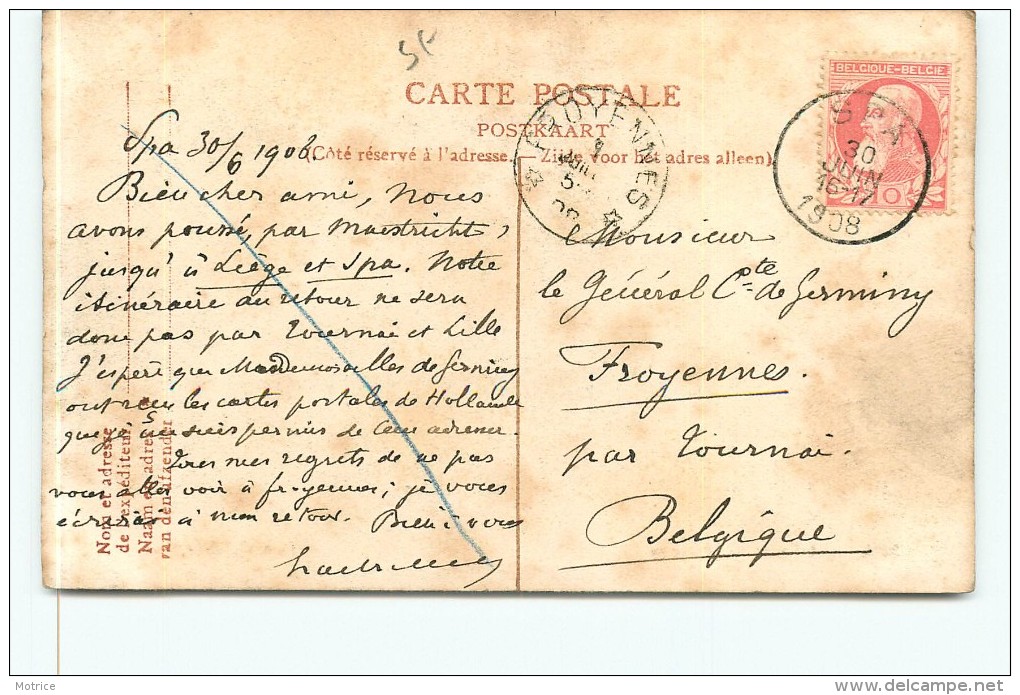 CARTE POSTALE
POSTKAART
(Côté réservé à l'adresse. — Zijde voor het adres alleen)
BELGIQUE-BELGIË
10
SPA
30
JUIN
16-17
1908
FROYENNES
1
JUIL
5
08
Spa 30/6 1908
Bien cher ami, Nous
avons poussé, par Maestricht,
jusqu'à Liège et Spa. Notre
itinéraire au retour ne sera
donc pas par Tournai et Lille
J'espère que Mesdemoiselles de Germiny
ont reçu les cartes postales de Hollande
que je me suis permis de leur adresser.
Tous mes regrets de ne pas
vous aller voir à froyennes; je vous
écrirai à mon retour. Bien à vous
Monsieur
le Général Cte de Germiny
Froyennes.
par Tournai.
Belgique
Nom et adresse
de l'expéditeur.
Naam en adres
van den afzender
Motrice
www.delcampe.net